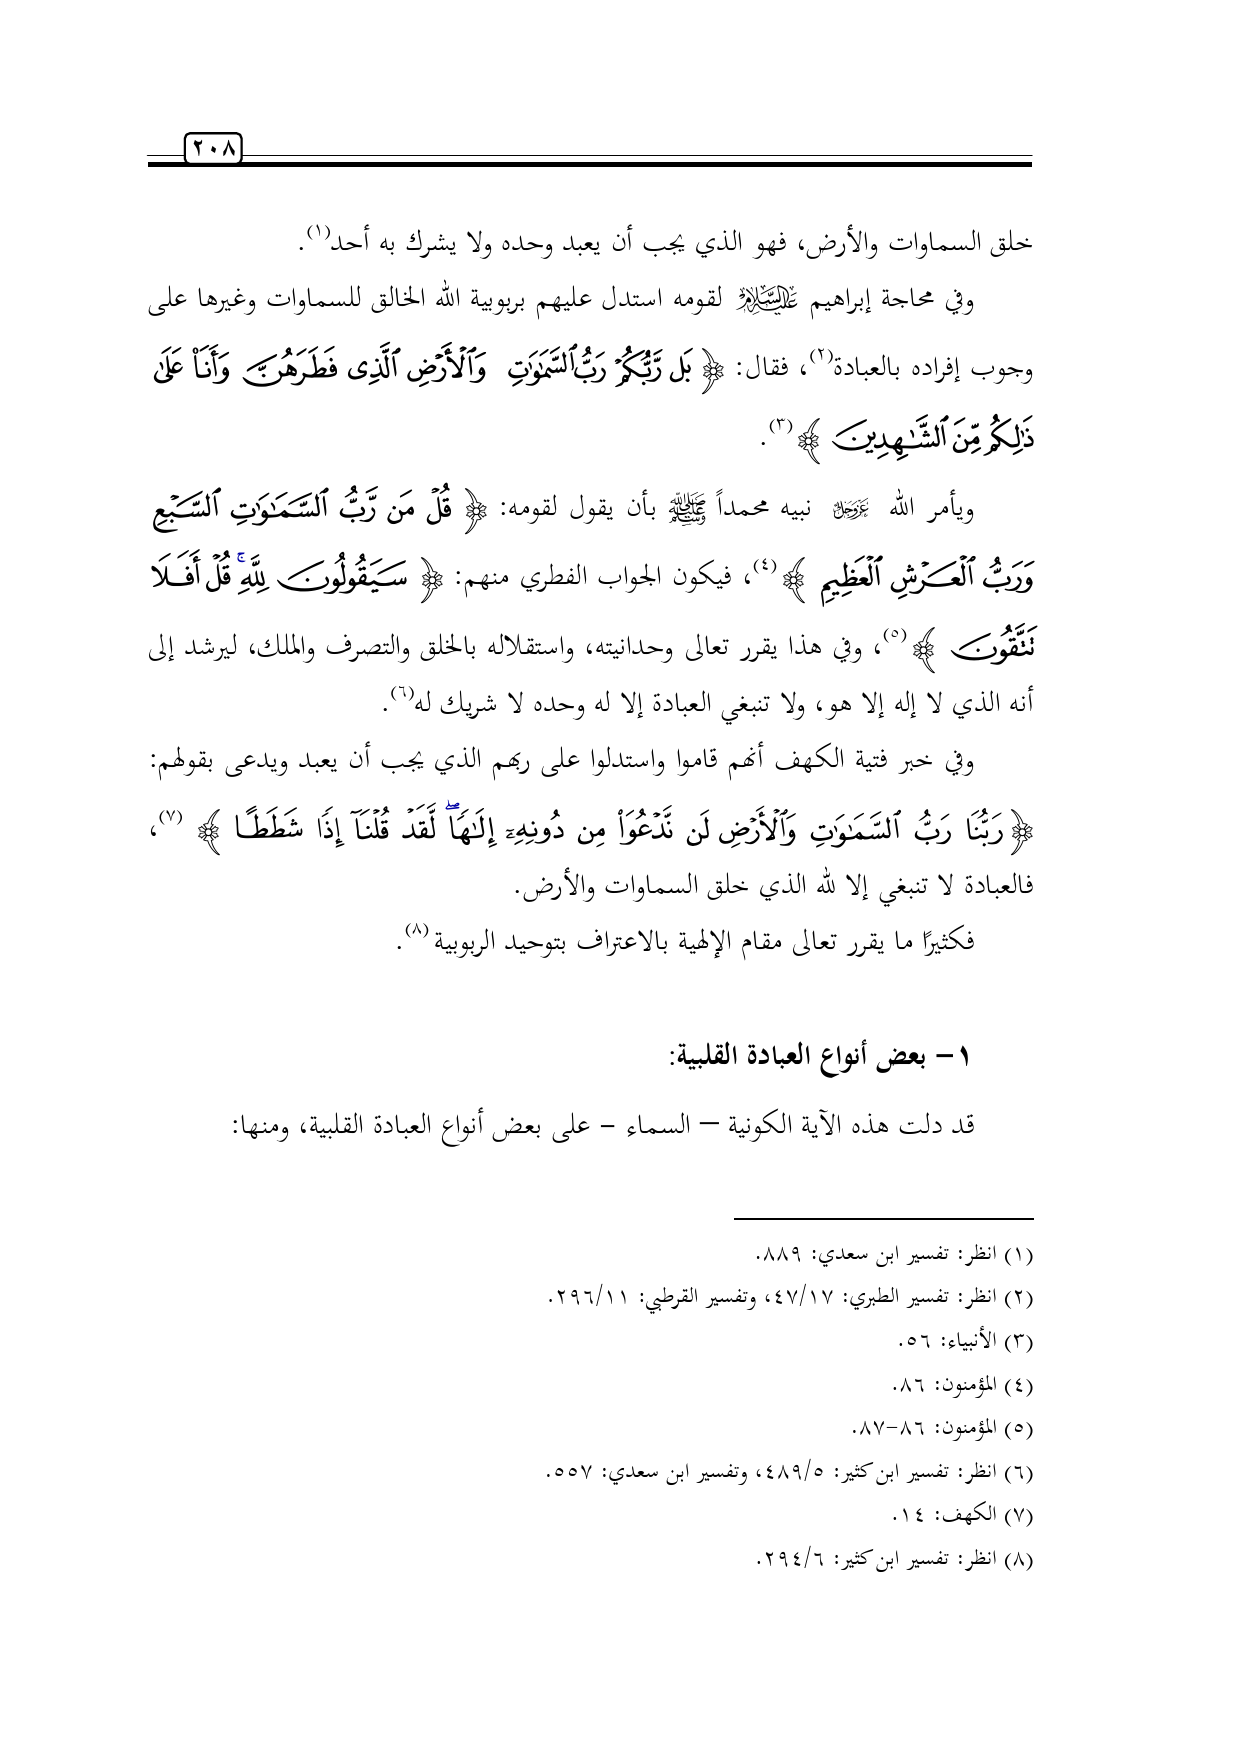 ٢٠٨
خلق السماوات والأرض، فهو الذي يجب أن يعبد وحده ولا يشرك به أحد(١).
وفي محاجة إبراهيم عليه السلام لقومه استدل عليهم بربوبية الله الخالق للسماوات وغيرها على
وجوب إفراده بالعبادة(٢)، فقال: ﴿ بَل رَّبُّكُمۡ رَبُّ ٱلسَّمَٰوَٰتِ وَٱلۡأَرۡضِ ٱلَّذِى فَطَرَهُنَّ وَأَنَا۠ عَلَىٰ
ذَٰلِكُم مِّنَ ٱلشَّٰهِدِينَ ﴾(٣).
ويأمر الله عز وجل نبيه محمداً ﷺ بأن يقول لقومه: ﴿ قُلۡ مَن رَّبُّ ٱلسَّمَٰوَٰتِ ٱلسَّبۡعِ
وَرَبُّ ٱلۡعَرۡشِ ٱلۡعَظِيمِ ﴾(٤)، فيكون الجواب الفطري منهم: ﴿ سَيَقُولُونَ لِلَّهِۚ قُلۡ أَفَلَا
تَتَّقُونَ ﴾(٥)، وفي هذا يقرر تعالى وحدانيته، واستقلاله بالخلق والتصرف والملك، ليرشد إلى
أنه الذي لا إله إلا هو، ولا تنبغي العبادة إلا له وحده لا شريك له(٦).
وفي خبر فتية الكهف أنهم قاموا واستدلوا على ربهم الذي يجب أن يعبد ويدعى بقولهم:
﴿ رَبُّنَا رَبُّ ٱلسَّمَٰوَٰتِ وَٱلۡأَرۡضِ لَن نَّدۡعُوَا۟ مِن دُونِهِۦٓ إِلَٰهٗاۖ لَّقَدۡ قُلۡنَآ إِذٗا شَطَطًا ﴾ (٧)،
فالعبادة لا تنبغي إلا لله الذي خلق السماوات والأرض.
فكثيرًا ما يقرر تعالى مقام الإلهية بالاعتراف بتوحيد الربوبية(٨).
١– بعض أنواع العبادة القلبية:
قد دلت هذه الآية الكونية – السماء – على بعض أنواع العبادة القلبية، ومنها:
(١) انظر: تفسير ابن سعدي: ٨٨٩.
(٢) انظر: تفسير الطبري: ٤٧/١٧، وتفسير القرطبي: ٢٩٦/١١.
(٣) الأنبياء: ٥٦.
(٤) المؤمنون: ٨٦.
(٥) المؤمنون: ٨٦–٨٧.
(٦) انظر: تفسير ابن كثير: ٤٨٩/٥، وتفسير ابن سعدي: ٥٥٧.
(٧) الكهف: ١٤.
(٨) انظر: تفسير ابن كثير: ٢٩٤/٦.